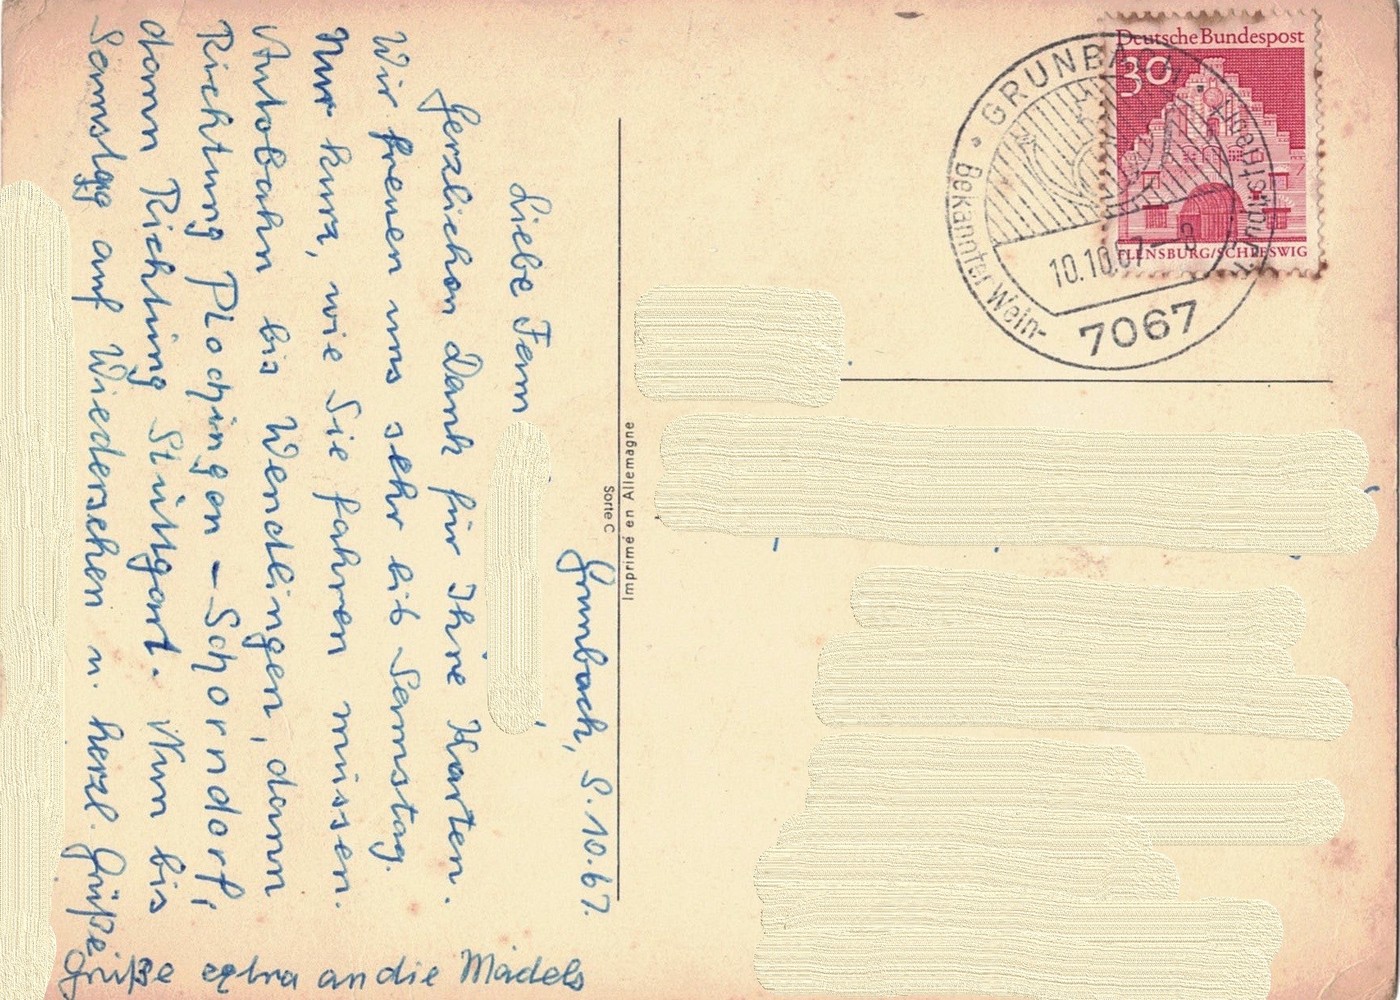 Grunbach, 9.10.67.
Liebe Fam
Herzlichen Dank für Ihre Karten.
Wir freuen uns sehr bis Samstag.
Nur kurz, wie Sie fahren müssen.
Autobahn bis Wendlingen, dann
Richtung Plochingen – Schorndorf,
dann Richtung Stuttgart. Nun bis
Samstag auf Wiedersehen u. herzl. Grüße
Grüße extra an die Mädels
Imprimé en Allemagne
Sorte C
Deutsche Bundespost
30
FLENSBURG/SCHLESWIG
GRUNBACH
Bekannter Wein-
10.10.67 - 8
7067